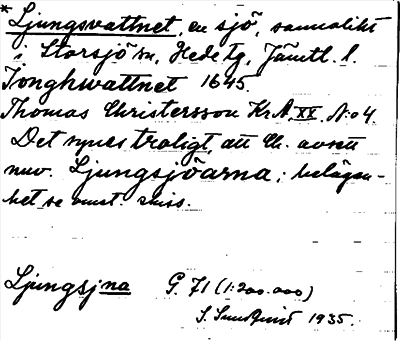 * Ljungsvattnet, en sjö, sannolikt
i Storsjö sn, Hede tg, Jämtl. l.
Jonghwattnet 1645.
Thomas Christersson Kr.A. XX, N:o 4.
Det synes troligt, att Ch. avsett
nuv. Ljungsjöarna; belägen-
het se omst. skiss.
Ljungsjna G. 71 (1:200.000)
S. Sundqvist 1935.